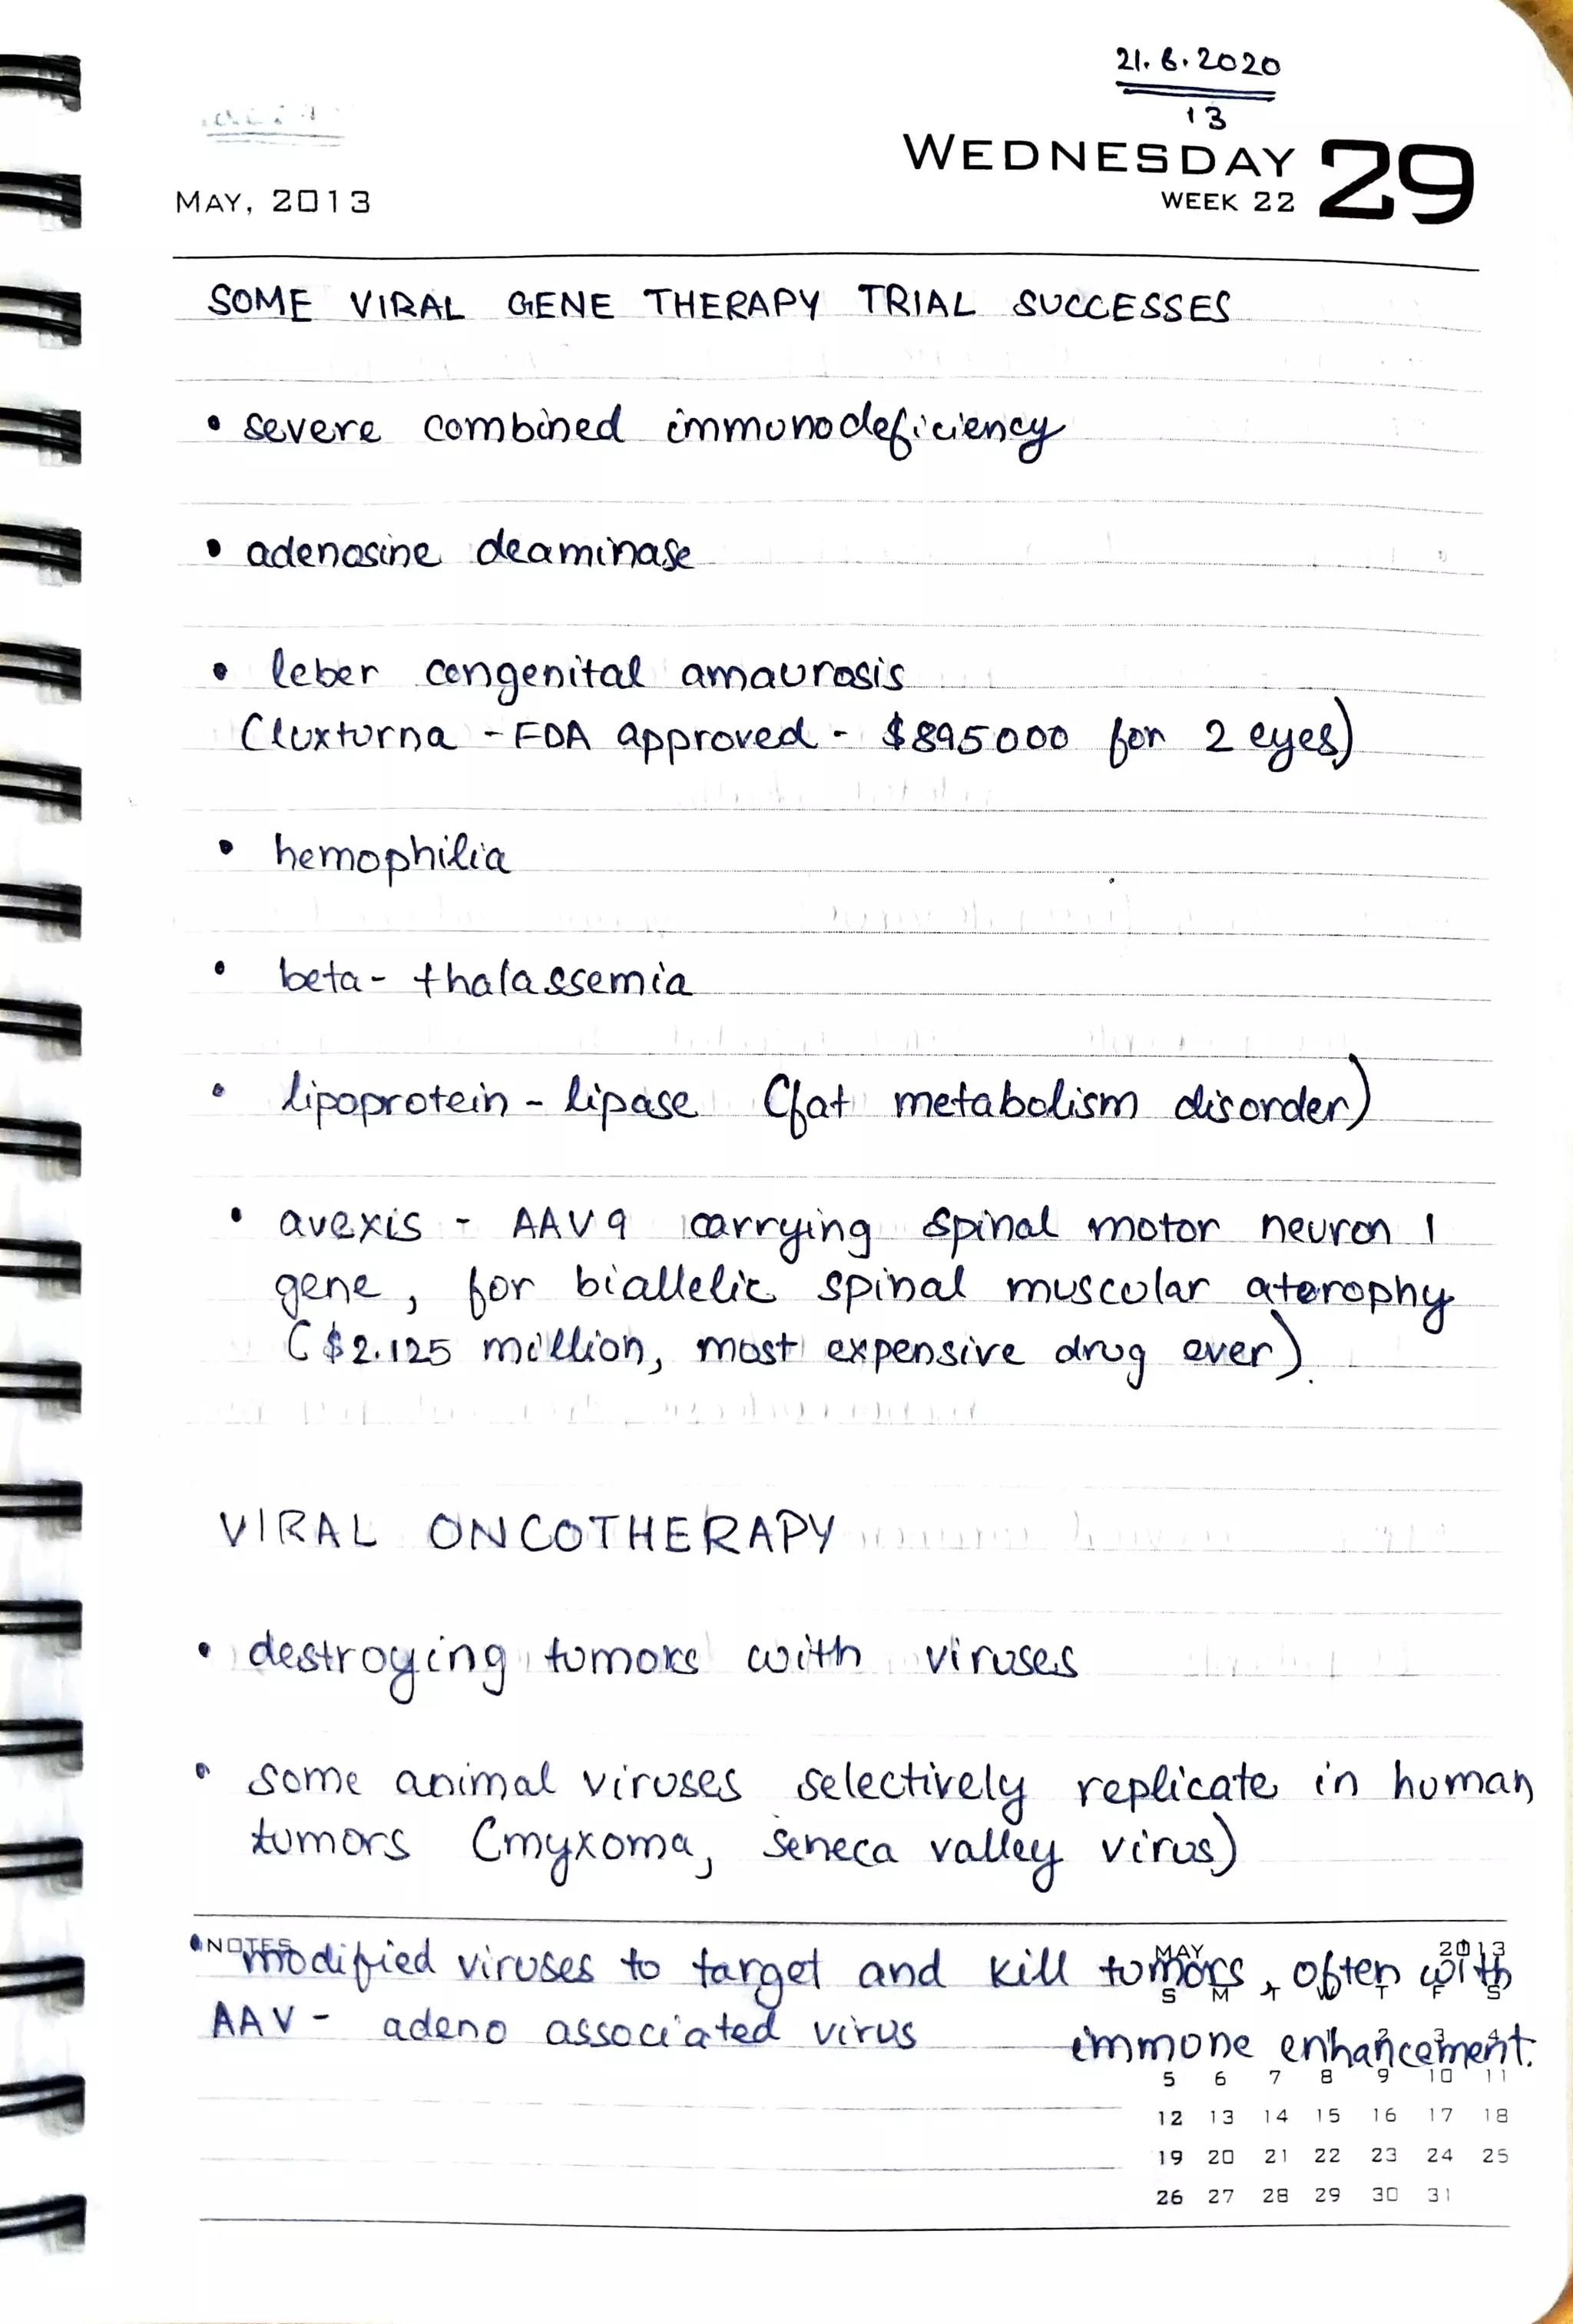 21.6.2020
13
WEDNESDAY 29
WEEK 22
MAY, 2013
SOME VIRAL GENE THERAPY TRIAL SUCCESSES
• severe combined immunodeficiency
• adenosine deaminase
• leber congenital amaurosis
(luxturna - FDA approved - $895000 for 2 eyes)
• hemophilia
• beta-thalassemia
• lipoprotein-lipase (fat metabolism disorder)
• avexis - AAV9 carrying spinal motor neuron 1
gene, for biallelic spinal muscular aterophy
($2.125 million, most expensive drug ever).
VIRAL ONCOTHERAPY
• destroying tumors with viruses
• some animal viruses selectively replicate in human
tumors (myxoma, seneca valley virus)
NOTES
MAY 2013
• modified viruses to target and kill tumors, often with
S M T W T F S
AAV - adeno associated virus immune enhancement.
2 3 4
5 6 7 8 9 10 11
12 13 14 15 16 17 18
19 20 21 22 23 24 25
26 27 28 29 30 31